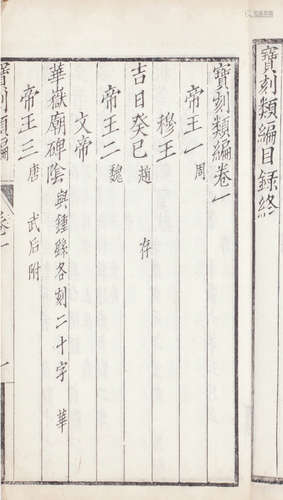 寶刻類編目錄終
寶刻類編卷一
帝王一 周
穆王
吉日癸巳 趙 存
帝王二 魏
文帝
華嶽廟碑陰 與鍾繇各刻二十字 華
帝王三 唐 武后附
寶刻類編
卷一
一